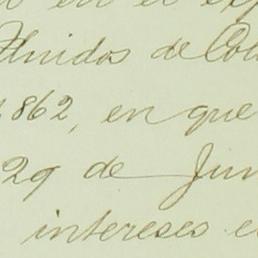 o en el exp
Unidos de Col
1862, en que
29 de Jun
intereses e